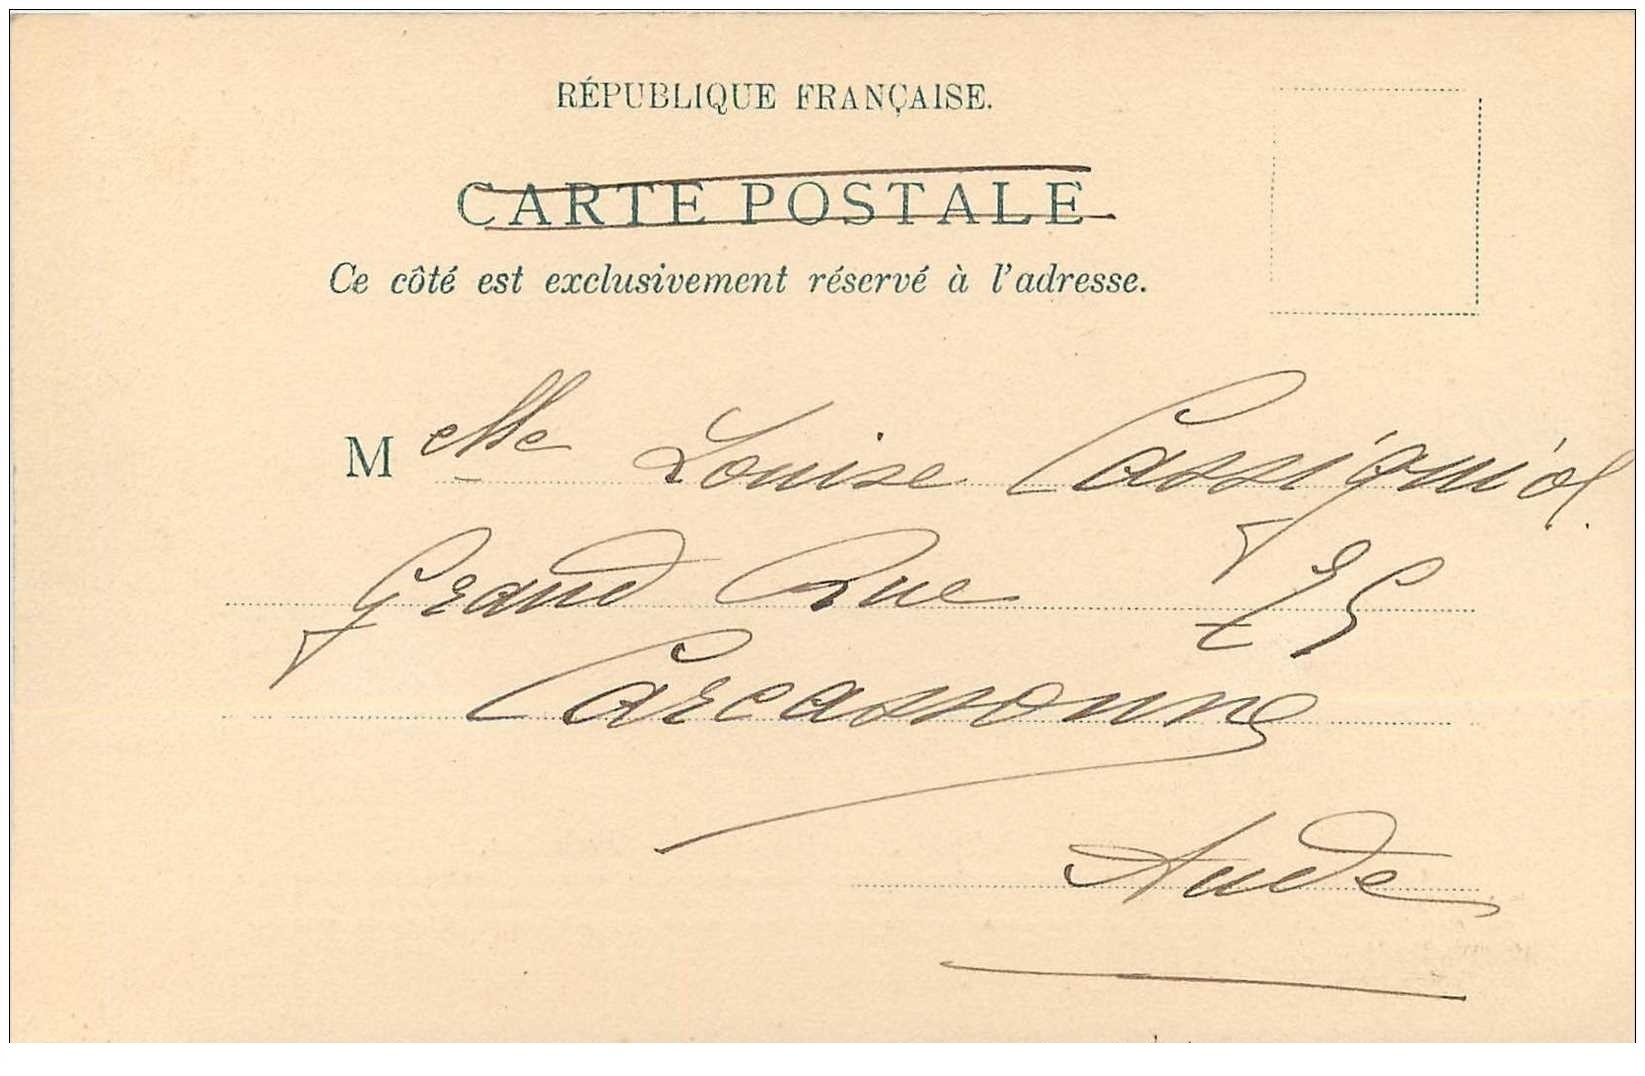 RÉPUBLIQUE FRANÇAISE.
CARTE POSTALE
Ce côté est exclusivement réservé à l'adresse.
Melle Louise Cassigniol
Grand Rue 75
Carcassonne
Aude